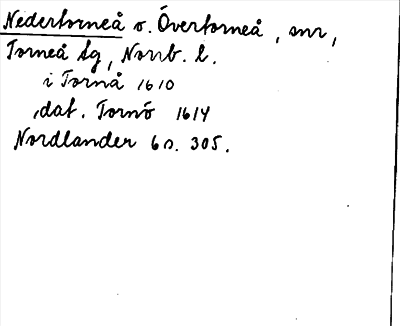 Nedertorneå o. Övertorneå, snr,
Torneå tg, Norrb. l.
i Tornå 1610
,dat. Tornö 1614
Nordlander 6 s. 305.